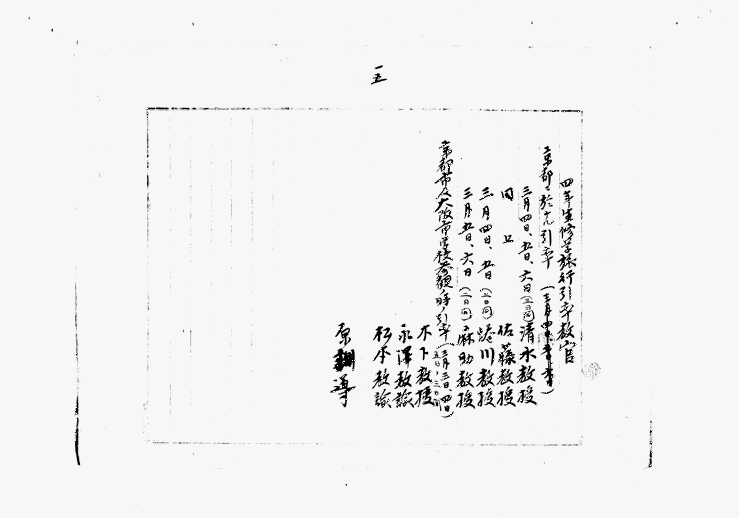 一五
四年生修学旅行引率教官
京都ニ於ケル引率
三月四日、五日、六日(三日間)清水教授
同上 佐藤教授
三月四日、五日(二日間)蜷川教授
三月五日、六日(二日間)麻助教授
京都市及大阪市学校参観ノ時ノ引率(三月三日、四日、五日ノ三日間)
木下教授
永澤教諭
松本教諭
原訓導